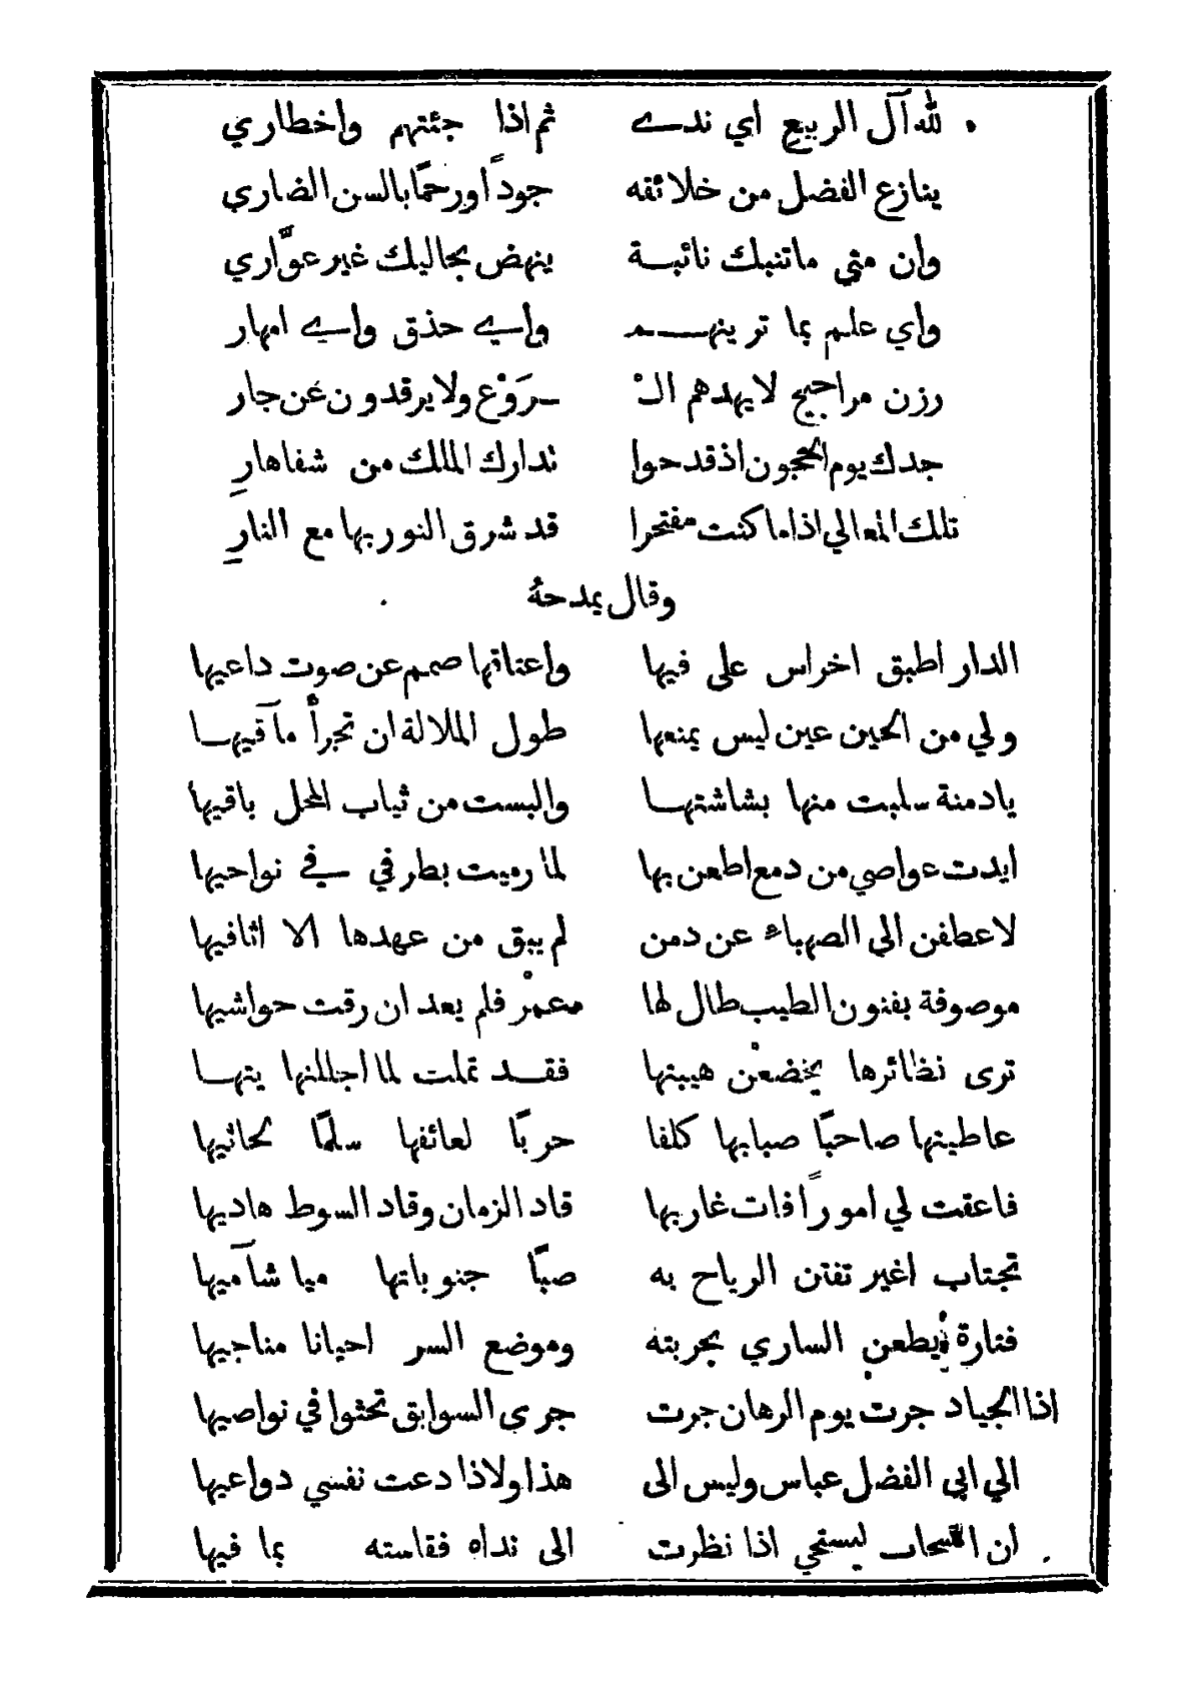 لله آل الربيع اي ندے ثم اذا جئتهم واخطاري
ينازع الفضل من خلائقه جوداً ورحمًا بالسن الضاري
وان متي ماتنبك نائبـة ينهض بجاليك غير عوّاري
واي علم بما تر ينهـم واے حذق واے امهار
رزن مراجيح لايهدهم الـْ ـرَوْع ولايرقدون عن جار
جدك يوم الحجون اذقدحوا تدارك الملك من شفاهارِ
تلك المعالي اذاماكنت مفتخرا قد شرق النوربها مع النارِ
وقال يمدحهُ
الدار اطبق اخراس على فيها واعتاتها صمم عن صوت داعيها
ولي من الحين عين ليس يمنعها طول الملالة ان تجرأ مآقيهـا
يادمنة سلبت منها بشاشتهـا والبست من ثياب المحل باقيها
ايدت عواصي من دمع اطعن بها لما رميت بطرفي في نواحيها
لاعطفن الى الصهباء عن دمن لم يبق من عهدها الا اثافيها
موصوفة بفنون الطيب طال لها معمرْ فلم يعد ان رقت حواشيها
ترى نظائرها يخضعْن هيبتها فقـد تملت لما اجللنها يتهـا
عاطيتها صاحبًا صبابها كلفا حربًا لعائفها سلمًا لحاثيها
فاعقت لي اموراً فات غاربها قاد الزمان وقاد السوط هاديها
تجتاب اغير تفتن الرياح به صبًا جنوباتها ميا شآميها
فتارة يطعن الساري بحربته وموضع السر احيانا مناجيها
اذا الجياد جرت يوم الرهان جرت جرى السوابق تحثوا في نواصيها
الي ابي الفضل عباس وليس الى هذا ولاذا دعت نفسي دواعيها
ان السحاب ليستحي اذا نظرت الى نداه فقاسته بما فيها